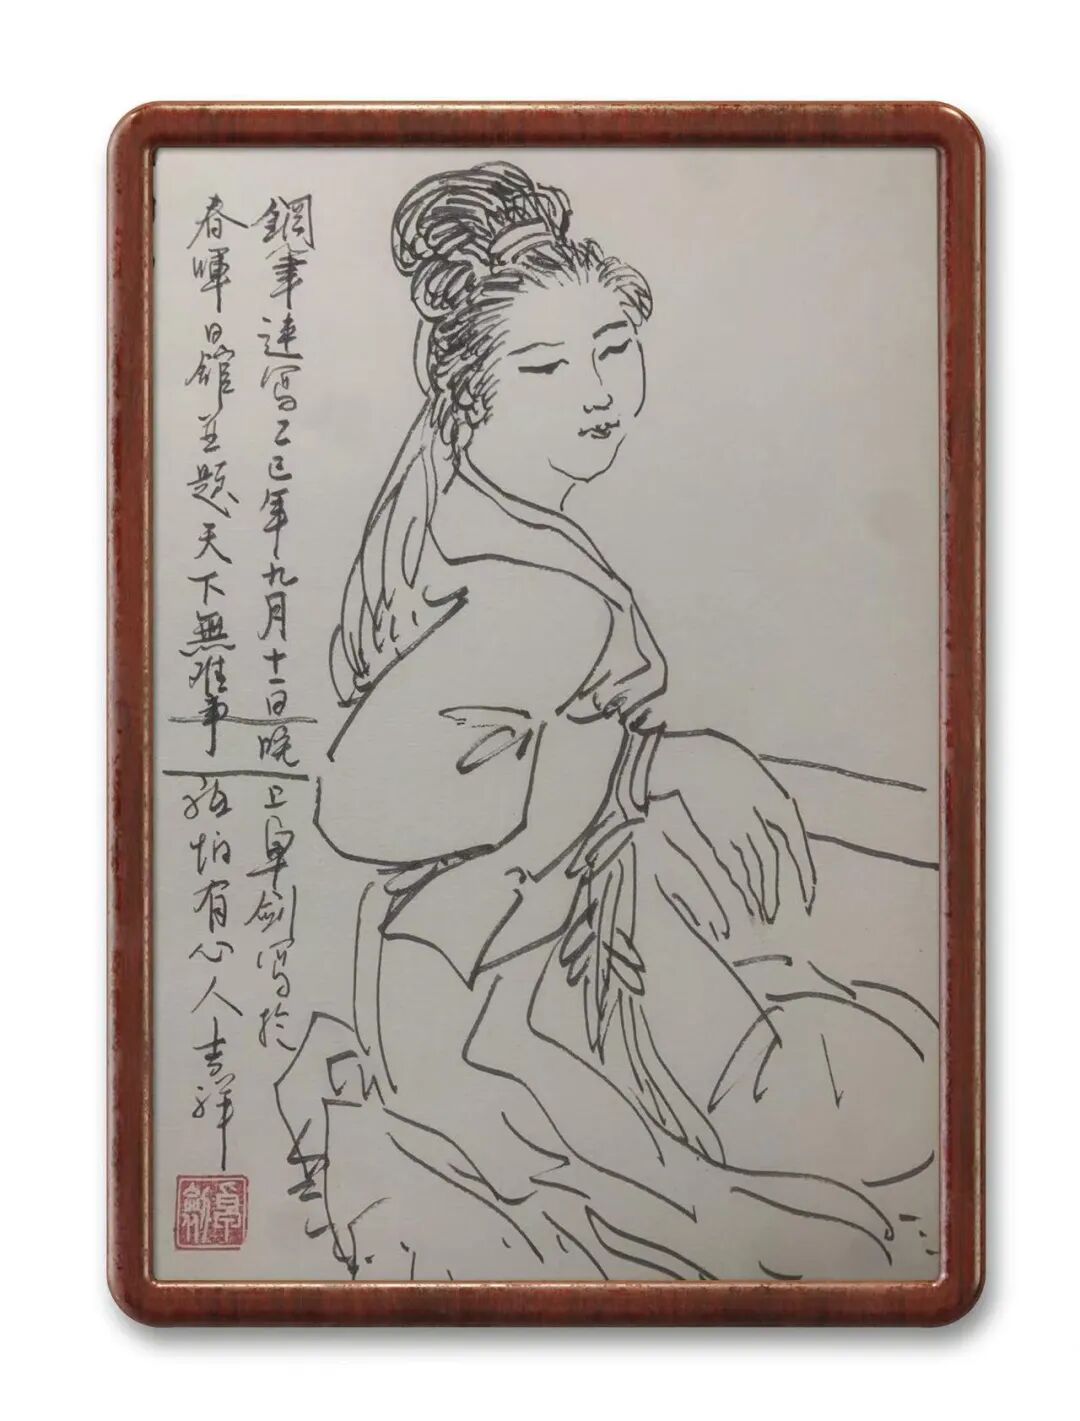 鋼筆速寫乙巳年九月十一日晚上卓劍寫於
春暉日館並題天下無难事祇怕有心人吉祥